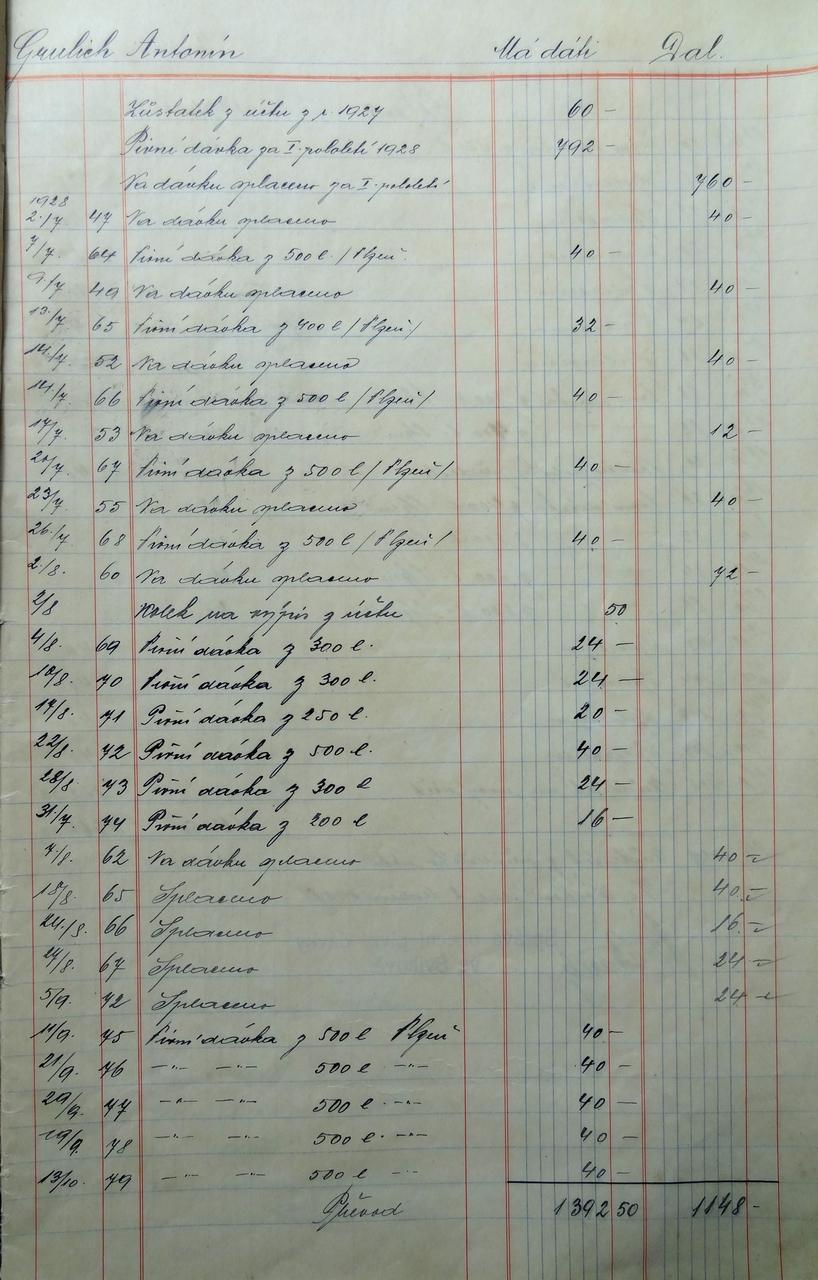 Grulich Antonín Má dáti Dal.
Zůstatek z účtu z r. 1927 60 —
Pivní dávka za I. pololetí 1928 792 —
Na dávku splaceno za I. pololetí 760 —
1928
2./7 47 Na dávku splaceno 40 —
7/7. 64 Pivní dávka z 500 l. / Plzeň. 40 —
9/7 49 Na dávku splaceno 40 —
13./7 65 Pivní dávka z 400 l / Plzeň / 32 —
14./7 52 Na dávku splaceno 40 —
14./7 66 Pivní dávka z 500 l / Plzeň / 40 —
17/7. 53 Na dávku splaceno 12 —
20/7. 67 Pivní dávka z 500 l / Plzeň / 40 —
23/7. 55 Na dávku splaceno 40 —
26./7 68 Pivní dávka z 500 l / Plzeň / 40 —
2./8. 60 Na dávku splaceno 72 —
2/8 Kolek na výpis z účtu 50
4/8. 69 Pivní dávka z 300 l. 24 —
10/8. 70 Pivní dávka z 300 l. 24 —
17/8. 71 Pivní dávka z 250 l. 20 —
22/8. 72 Pivní dávka z 500 l. 40 —
28/8. 73 Pivní dávka z 300 l 24 —
31./7. 74 Pivní dávka z 200 l 16 —
7./8. 62 Na dávku splaceno 40 =
18/8. 65 Splaceno 40 =
24./8. 66 Splaceno 16 =
27/8. 67 Splaceno 24 =
5/9. 72 Splaceno 24 =
11/9. 75 Pivní dávka z 500 l Plzeň 40 —
21/9. 76 —"— —"— 500 l —"— 40 —
29/9. 77 —"— —"— 500 l. —"— 40 —
29/9. 78 —"— —"— 500 l. —"— 40 —
13/10. 79 —"— —"— 500 l —"— 40 —
Převod 1392 50 1148 —